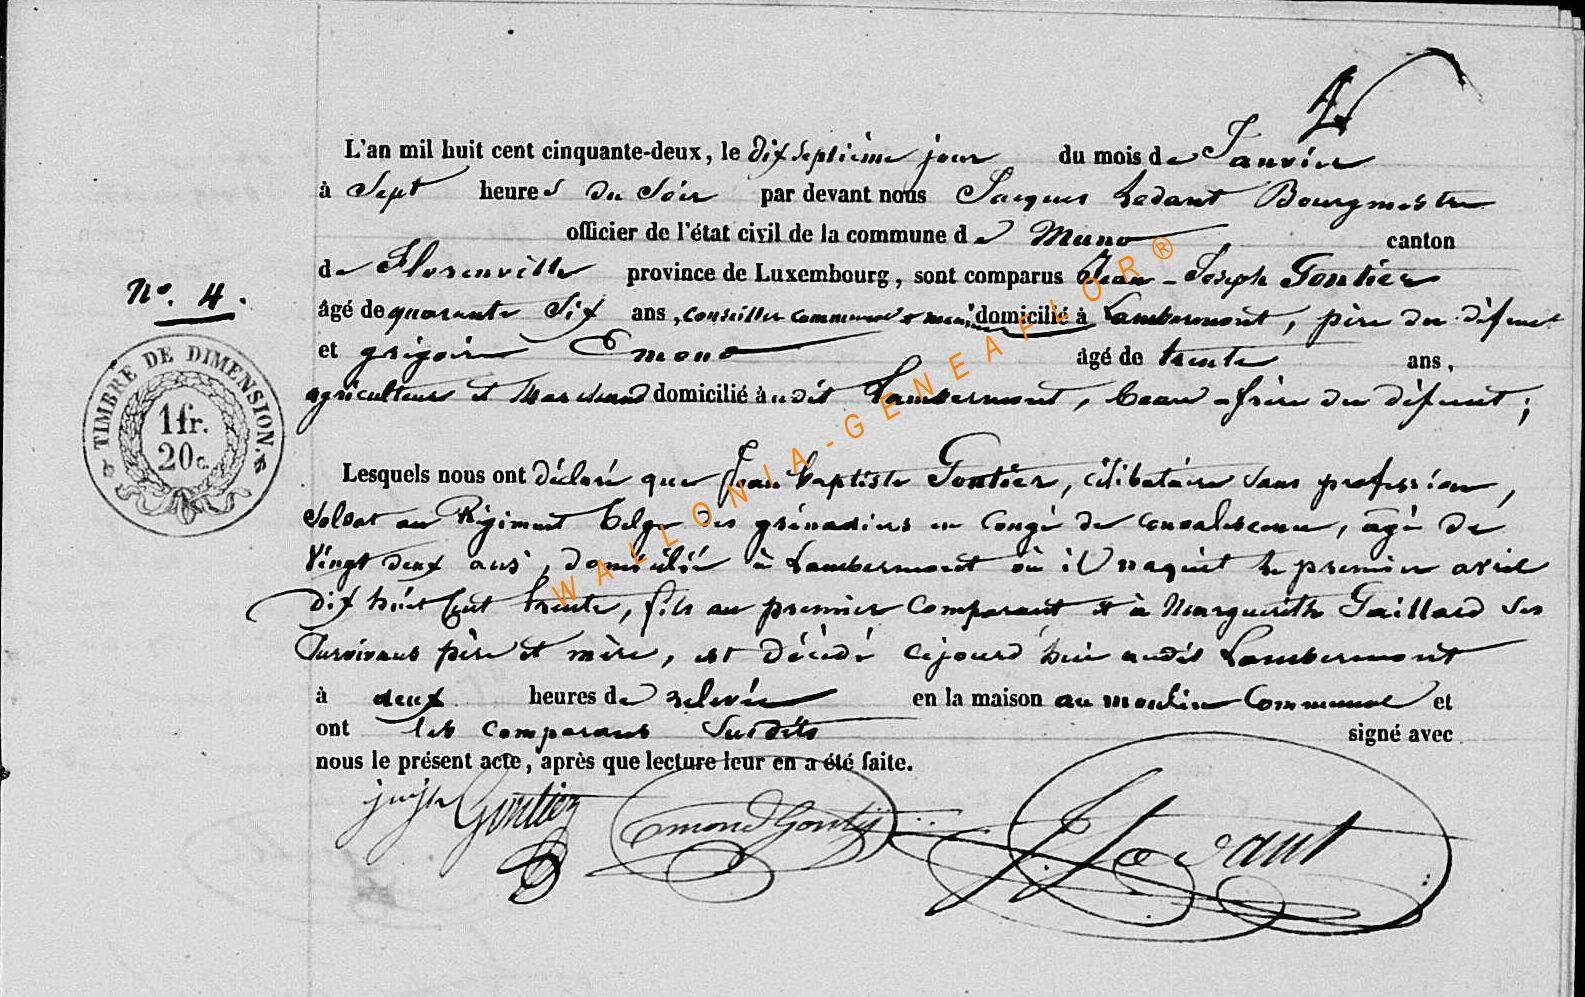 4
L'an mil huit cent cinquante-deux, le dix septième jour du mois de Janvier
à Sept heures du Soir par devant nous Jacques Ledant Bourgmestre
officier de l'état civil de la commune de Muno canton
de Florenville province de Luxembourg, sont comparus Jean-Joseph Gontier
âgé de quarante Six ans, conseiller communal et domicilié à Lambermont, père du défunt
et grégoire Emond âgé de trente ans,
agriculteur et Marchand domicilié audit Lambermont, beau-frère du défunt;
Nº. 4.
TIMBRE DE DIMENSION.
1fr.
20c.
Lesquels nous ont déclaré que Jean Baptiste Gontier, célibataire sans profession,
Soldat au Régiment belge des grénadiers en Congé de convalescence, âgé de
Vingt deux ans, domicilié à Lambermont où il naquit le premier avril
Dix huit Cent trente, fils au premier Comparant et à Marguerithe Gaillard Ses
Survivans père et mère, est décédé cejourd'hui audit Lambermont
à deux heures de relevée en la maison au moulin Communal et
ont les comparans Susdits signé avec
nous le présent acte, après que lecture leur en a été faite.
Gontier Emond Gontier J. Ledant
WALLONIA-GENEAFLOR®